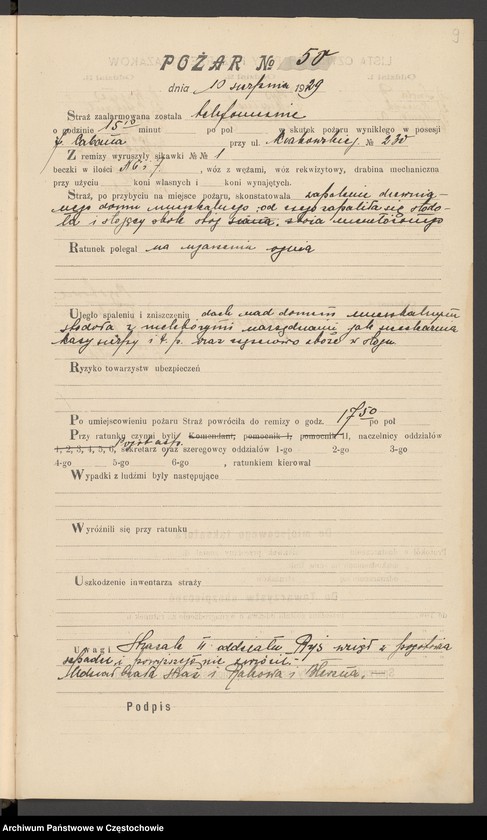 9
POŻAR № 50
dnia 10 sierpnia 1929
Straż zaalarmowana została telefonicznie
o godzinie 15 10 minut po poł w skutek pożaru wynikłego w posesji
przy ul. Krakowskiej № 230
Z remizy wyruszyły sikawki № № 1
beczki w ilości № 6 i 7, wóz z wężami, wóz rekwizytowy, drabina mechaniczna
przy użyciu koni własnych i koni wynajętych.
Straż, po przybyciu na miejsce pożaru, skonstatowała zapalenie drewnia-
nego domu mieszkalnego od czego zapaliła się stodo-
ła i stojący obok stóg
Ratunek polegał na ugaszeniu ognia
Uległo spaleniu i zniszczeniu dach nad domem mieszkalnym
stodoła z niektórymi narzędziami jak sieczkarnia
i t. p. oraz częściowo zboże w stogu
Ryzyko towarzystw ubezpieczeń
Po umiejscowieniu pożaru Straż powróciła do remizy o godz. 17 50 po poł
Przy ratunku czynni byli: Komendant, pomocnik I, pomocnik II, naczelnicy oddziałów
1, 2, 3, 4, 5, 6, sekretarz oraz szeregowcy oddziałów 1-go 2-go 3-go
4-go 5-go 6-go , ratunkiem kierował
Wypadki z ludźmi były następujące
Wyróżnili się przy ratunku
Uszkodzenie inwentarza straży
Uwagi Strażak II oddziału Ryś wziął z pogotowia
i
Podpis
Archiwum Państwowe w Częstochowie